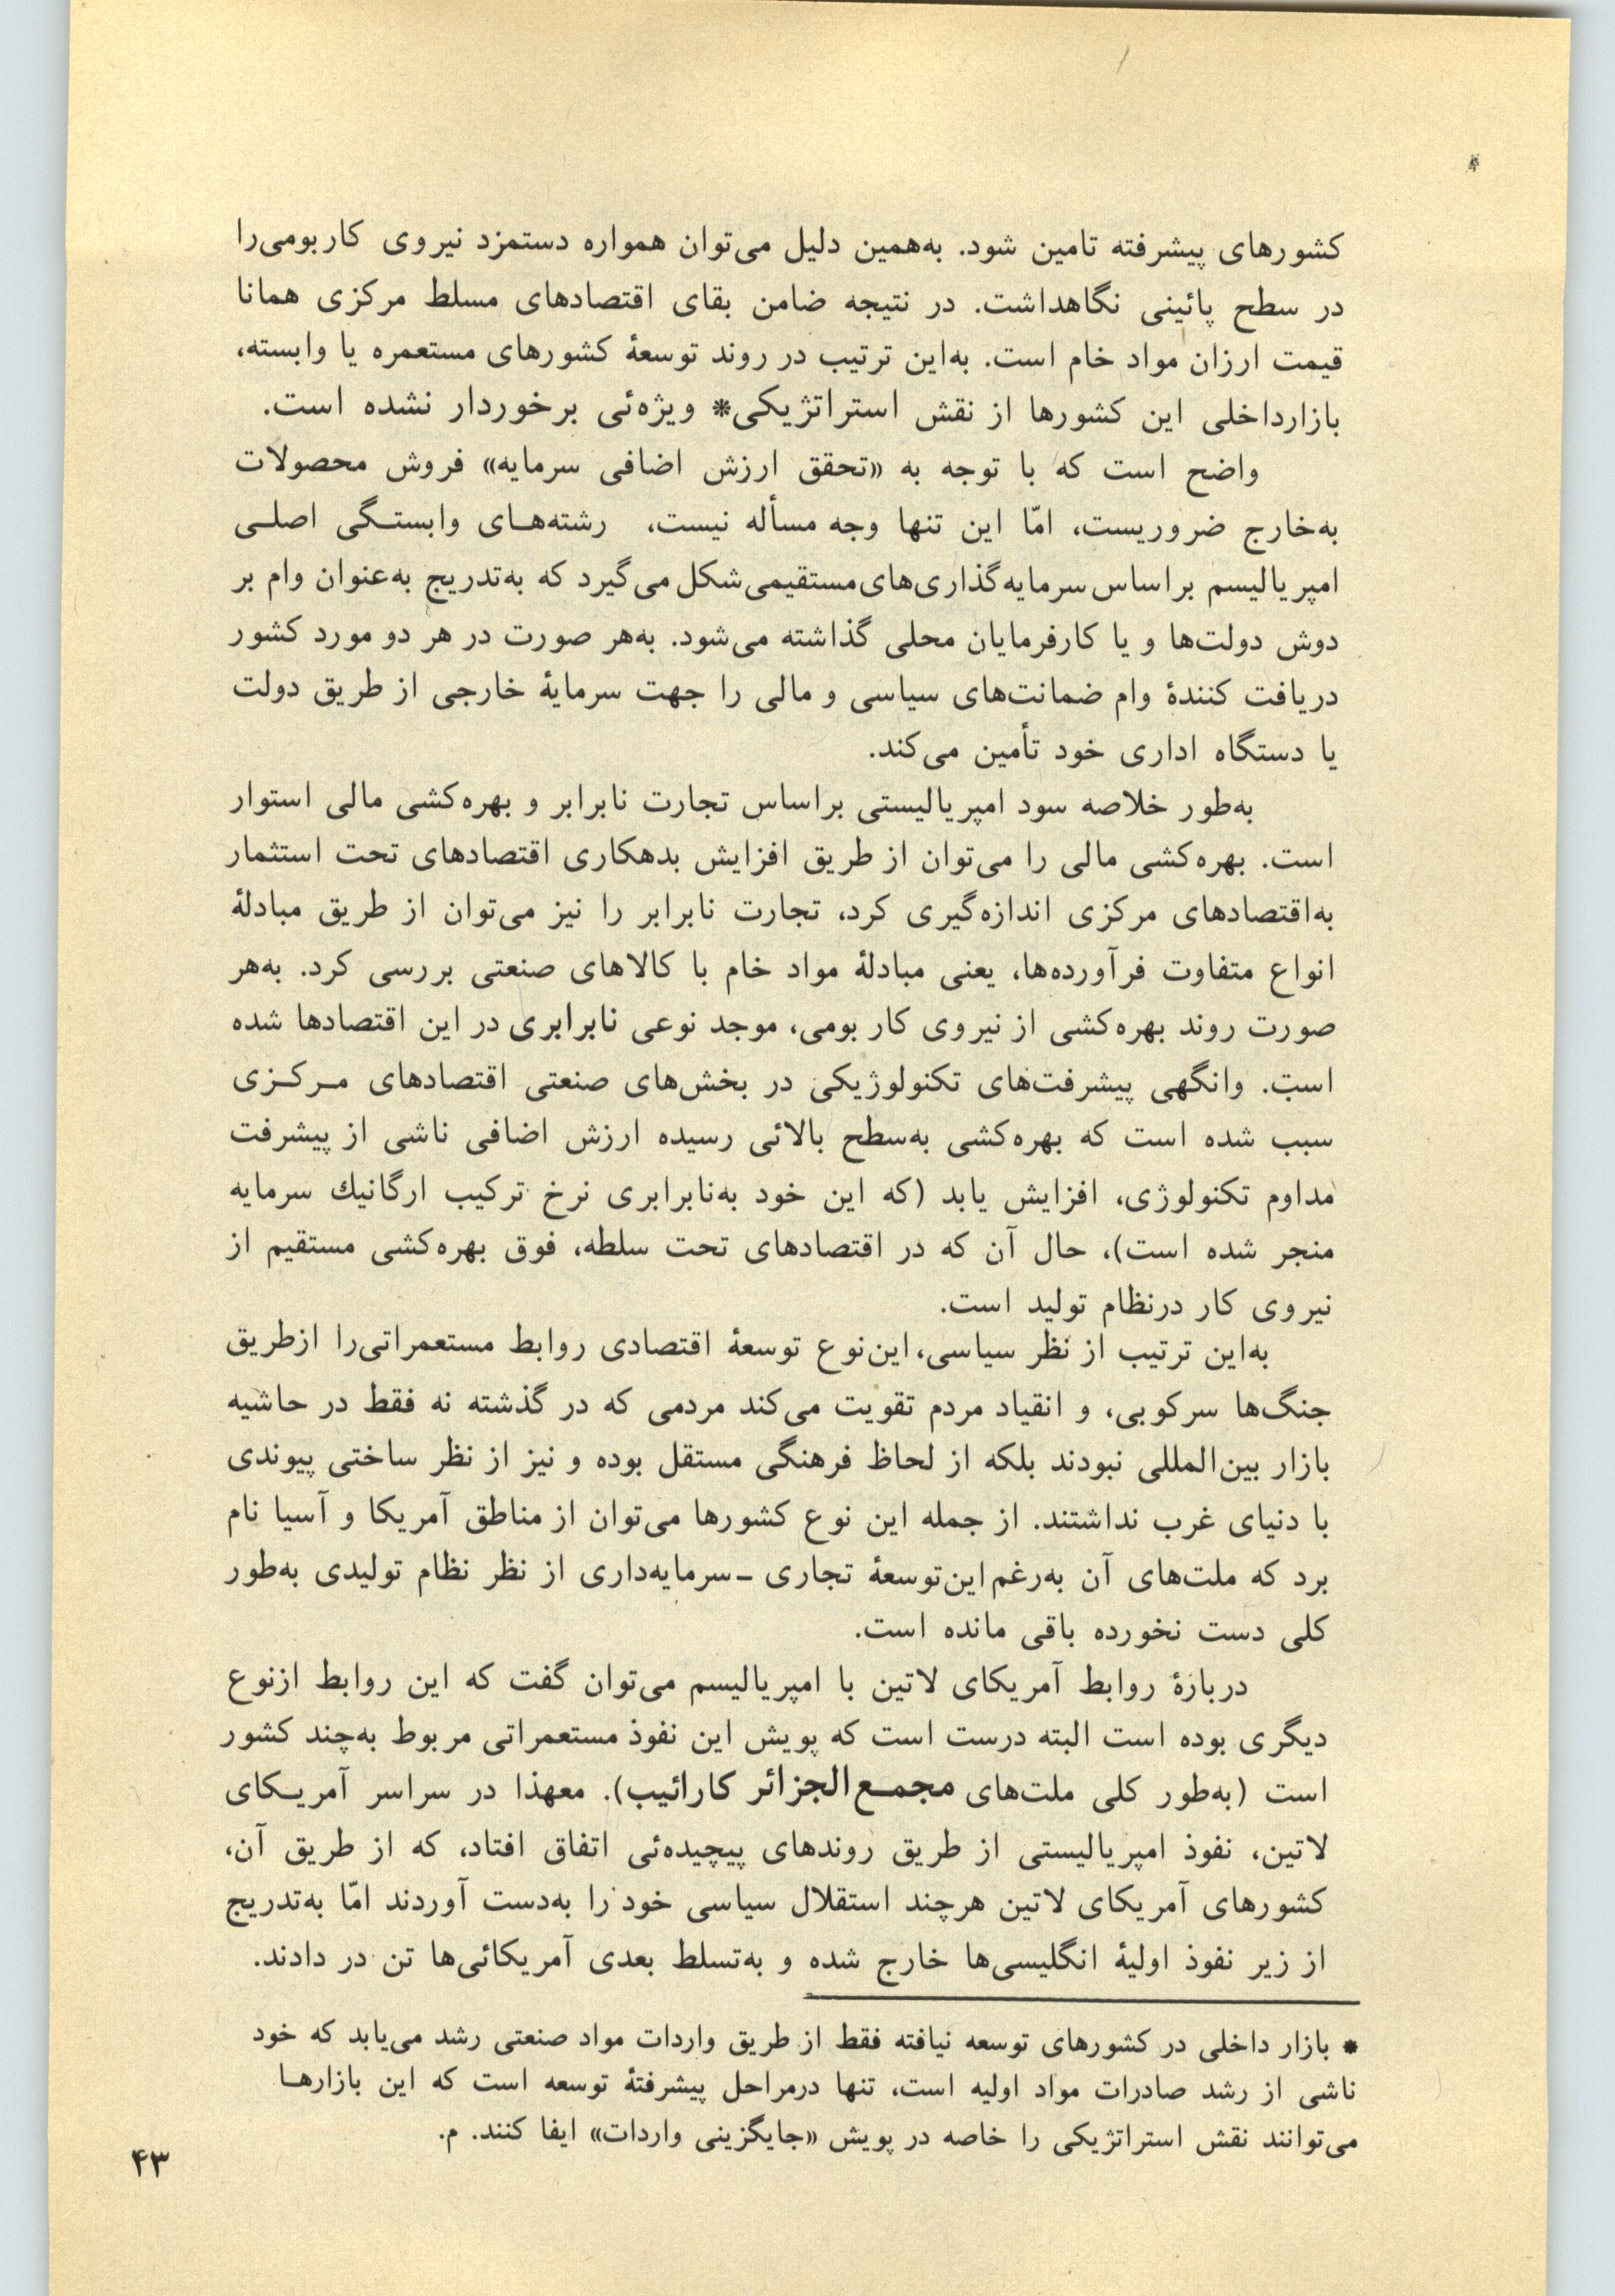 کشورهای پیشرفته تامین شود. به‌همین دلیل می‌توان همواره دستمزد نیروی کار بومی‌را
در سطح پائینی نگاهداشت. در نتیجه ضامن بقای اقتصادهای مسلط مرکزی همانا
قیمت ارزان مواد خام است. به‌این ترتیب در روند توسعهٔ کشورهای مستعمره یا وابسته،
بازارداخلی این کشورها از نقش استراتژیکی* ویژه‌ئی برخوردار نشده است.
واضح است که با توجه به «تحقق ارزش اضافی سرمایه» فروش محصولات
به‌خارج ضروریست، امّا این تنها وجه مسأله نیست، رشته‌هـای وابستـگی اصلـی
امپریالیسم براساس سرمایه‌گذاری‌های مستقیمی شکل می‌گیرد که به‌تدریج به‌عنوان وام بر
دوش دولت‌ها و یا کارفرمایان محلی گذاشته می‌شود. به‌هر صورت در هر دو مورد کشور
دریافت کنندهٔ وام ضمانت‌های سیاسی و مالی را جهت سرمایهٔ خارجی از طریق دولت
یا دستگاه اداری خود تأمین می‌کند.
به‌طور خلاصه سود امپریالیستی براساس تجارت نابرابر و بهره‌کشی مالی استوار
است. بهره‌کشی مالی را می‌توان از طریق افزایش بدهکاری اقتصادهای تحت استثمار
به‌اقتصادهای مرکزی اندازه‌گیری کرد، تجارت نابرابر را نیز می‌توان از طریق مبادلهٔ
انواع متفاوت فرآورده‌ها، یعنی مبادلهٔ مواد خام با کالاهای صنعتی بررسی کرد. به‌هر
صورت روند بهره‌کشی از نیروی کار بومی، موجد نوعی نابرابری در این اقتصادها شده
است. وانگهی پیشرفت‌های تکنولوژیکی در بخش‌های صنعتی اقتصادهای مـرکـزی
سبب شده است که بهره‌کشی به‌سطح بالائی رسیده ارزش اضافی ناشی از پیشرفت
مداوم تکنولوژی، افزایش یابد (که این خود به‌نابرابری نرخ ترکیب ارگانیك سرمایه
منجر شده است)، حال آن که در اقتصادهای تحت سلطه، فوق بهره‌کشی مستقیم از
نیروی کار درنظام تولید است.
به‌این ترتیب از نظر سیاسی، این‌نوع توسعهٔ اقتصادی روابط مستعمراتی‌را ازطریق
جنگ‌ها سرکوبی، و انقیاد مردم تقویت می‌کند مردمی که در گذشته نه فقط در حاشیه
بازار بین‌المللی نبودند بلکه از لحاظ فرهنگی مستقل بوده و نیز از نظر ساختی پیوندی
با دنیای غرب نداشتند. از جمله این نوع کشورها می‌توان از مناطق آمریکا و آسیا نام
برد که ملت‌های آن به‌رغم این‌توسعهٔ تجاری ـ سرمایه‌داری از نظر نظام تولیدی به‌طور
کلی دست نخورده باقی مانده است.
دربارهٔ روابط آمریکای لاتین با امپریالیسم می‌توان گفت که این روابط ازنوع
دیگری بوده است البته درست است که پویش این نفوذ مستعمراتی مربوط به‌چند کشور
است (به‌طور کلی ملت‌های مجمـع‌الجزائر کارائیب). معهذا در سراسر آمریـکای
لاتین، نفوذ امپریالیستی از طریق روندهای پیچیده‌ئی اتفاق افتاد، که از طریق آن،
کشورهای آمریکای لاتین هرچند استقلال سیاسی خود را به‌دست آوردند امّا به‌تدریج
از زیر نفوذ اولیهٔ انگلیسی‌ها خارج شده و به‌تسلط بعدی آمریکائی‌ها تن در دادند.
* بازار داخلی در کشورهای توسعه نیافته فقط از طریق واردات مواد صنعتی رشد می‌یابد که خود
ناشی از رشد صادرات مواد اولیه است، تنها درمراحل پیشرفتهٔ توسعه است که این بازارهـا
می‌توانند نقش استراتژیکی را خاصه در پویش «جایگزینی واردات» ایفا کنند. م.
۴۳